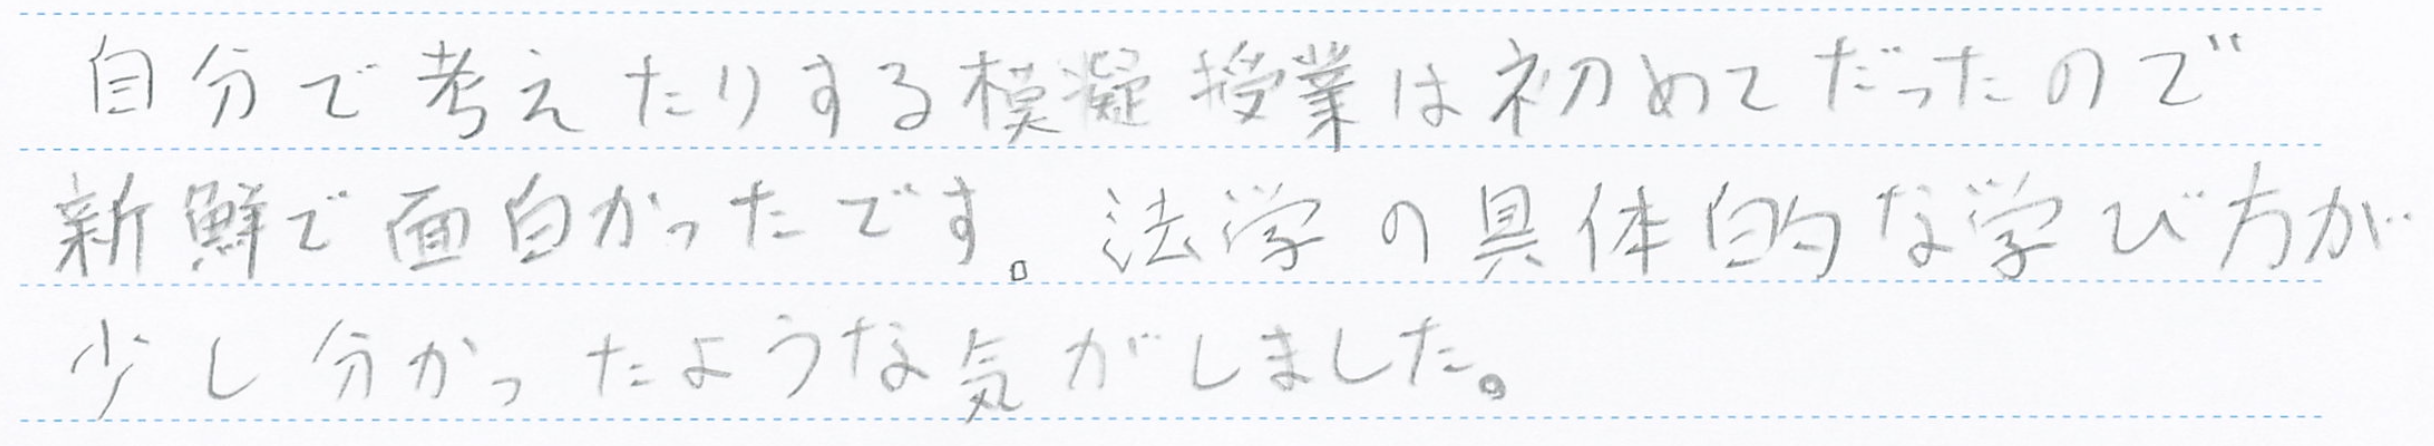 自分で考えたりする模凝授業は初めてだったので
新鮮で面白かったです。法学の具体的な学び方が
少し分かったような気がしました。